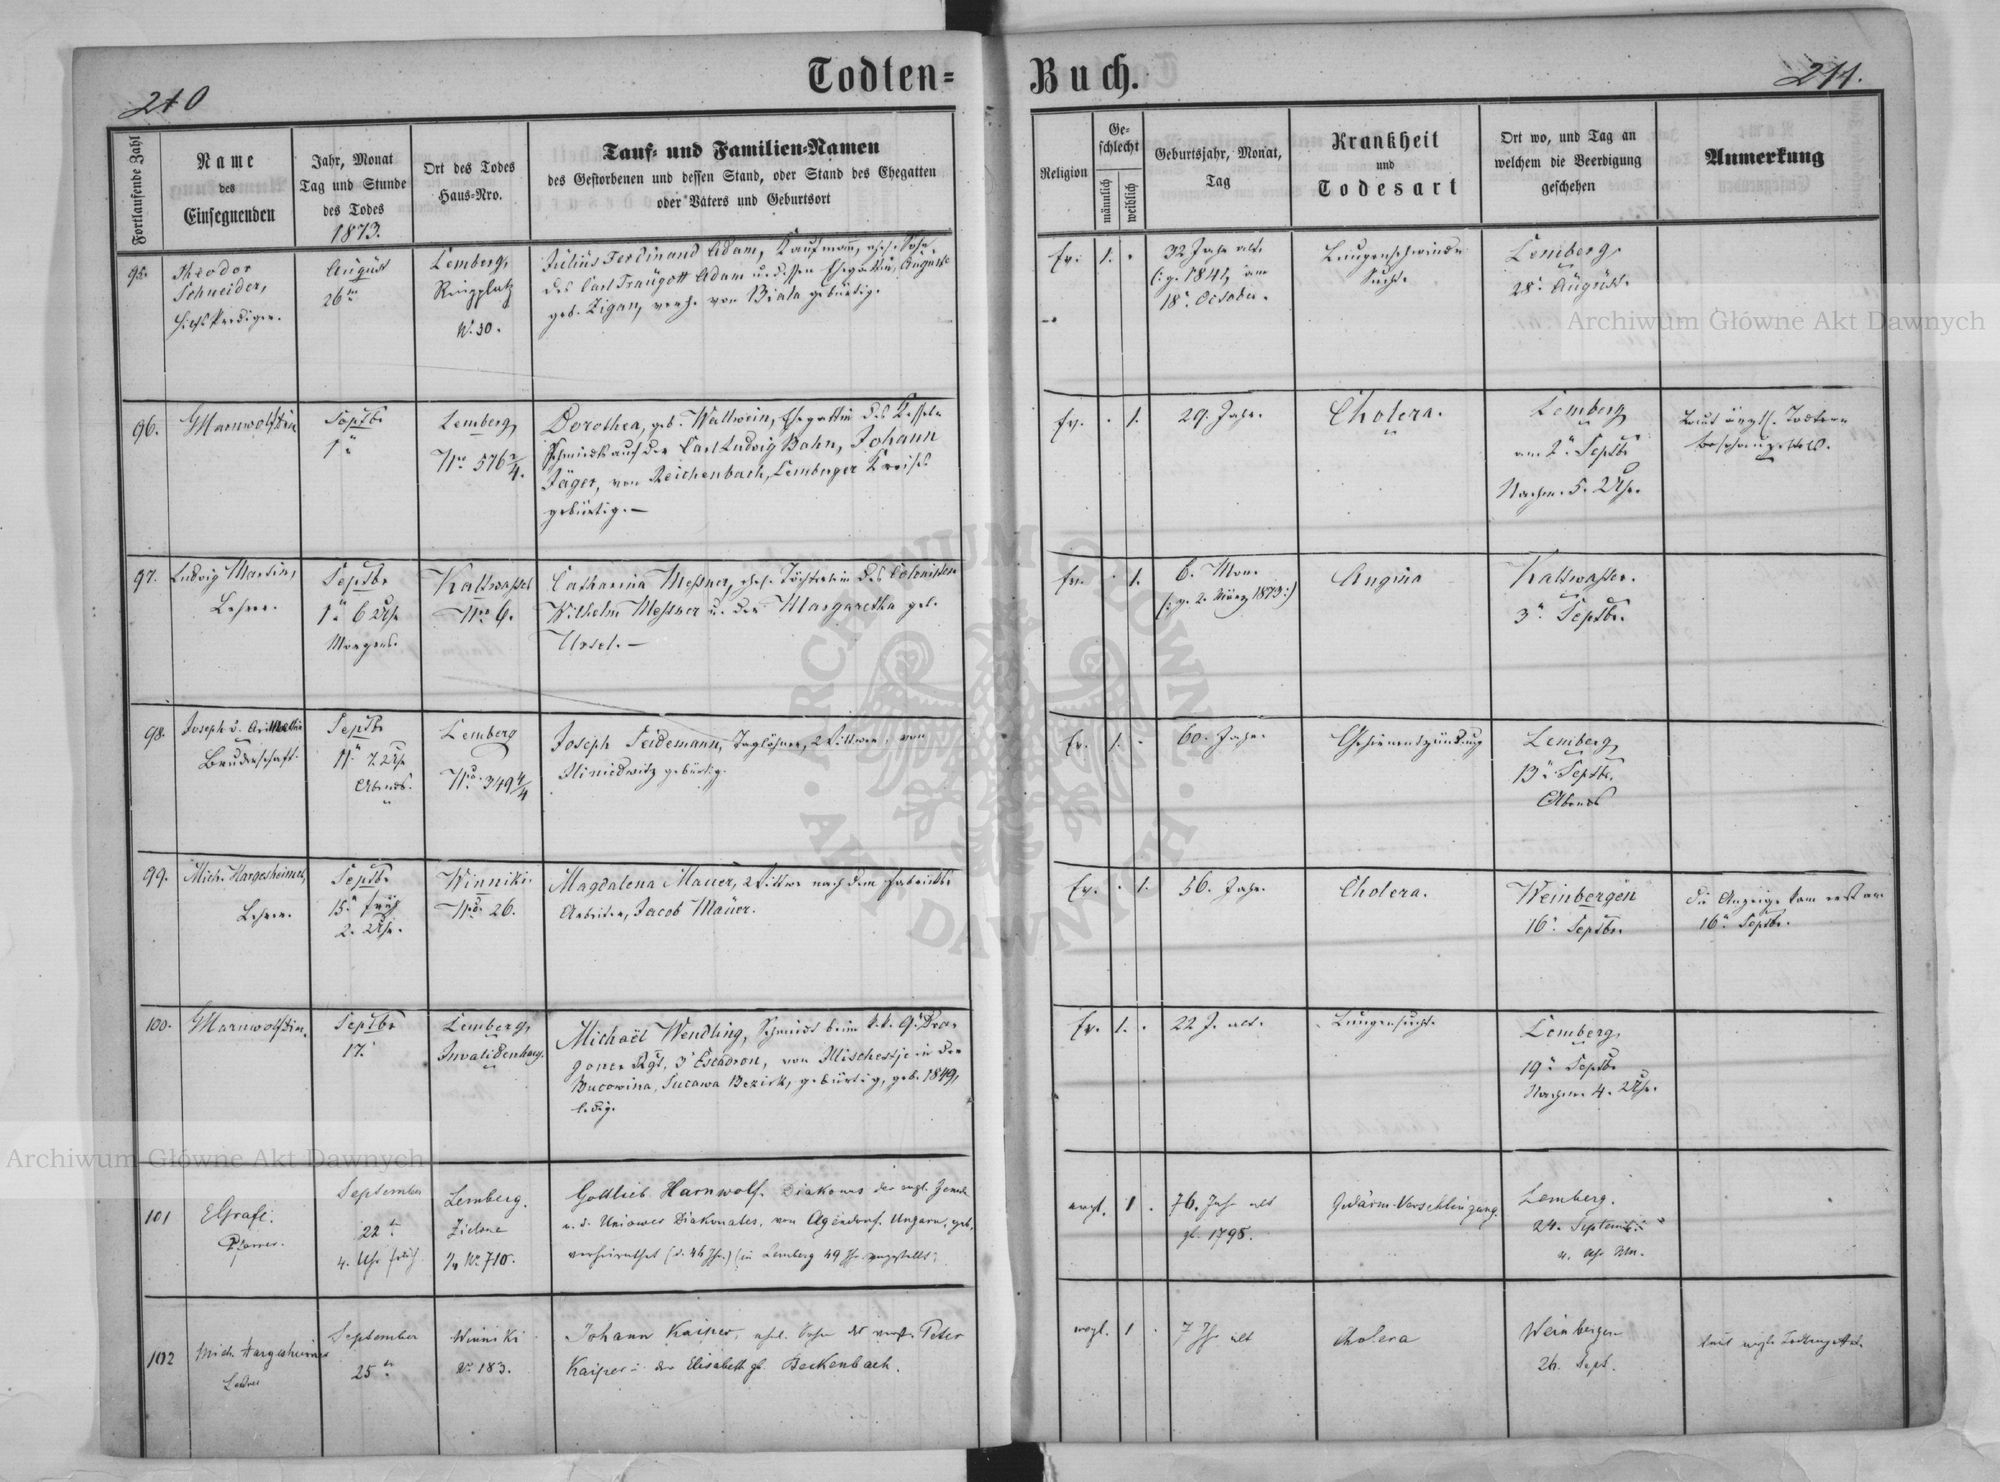 Todten=
Buch.
210
211.
Fortlaufende Zahl
Name
des
Einsegnenden
Jahr, Monat
Tag und Stunde
des Todes
1873.
Ort des Todes
Haus-Nro.
Tauf- und Familien-Namen
des Gestorbenen und dessen Stand, oder Stand des Ehegatten
oder Vaters und Geburtsort
Religion
Ge-
schlecht
männlich
weiblich
Geburtsjahr, Monat,
Tag
Krankheit
und
Todesart
Ort wo, und Tag an
welchem die Beerdigung
geschehen
Anmerkung
95.
Theodor
Schneider,
Hilfsprediger.
August
26
Lemberg,
Ringplatz
N. 30.
Julius Ferdinand Adam, Kaufmann, ehel. Sohn
des Carl Traugott Adam u. dessen Ehegattin Auguste
geb. Zigan, von Biala gebürtig.
Ev.
1.
32 Jahr alt.
1841, am
18. October.
Lungenschwind-
Sucht.
Lemberg,
28. August.
96.
Septbr
1
Lemberg,
Nro 576 2/4.
Dorothea, geb. Wallwein, Ehegattin des Kessel-
Schmieds auf der Carl Ludwig Bahn, Johann
Jäger, von Reichenbach, Lemberger Kreises
gebürtig. —
Ev.
1.
29. Jahr.
Cholera.
Lemberg
am 2 Septbr
Nachm. 5. Uhr.
97.
Ludwig Martin,
Lehrer.
Septbr
1 6 Uhr
Morgens.
Kaltwasser
Nro 6.
Catharina Messner, ehel. Töchterlein des Colonisten
Wilhelm Messner u. der Margaretha geb.
Ursel. —
Ev.
1.
6. Mon.
2. März 1873
Angina
Kaltwasser.
3 Septbr.
98.
Joseph v. Arimathia
Bruderschaft.
Septbr
11 7 Uhr
Abends.
Lemberg
Nro. 349 4/4
Joseph Seidemann, Taglöhner, Wittwer, von
gebürtig.
Ev.
1.
60. Jahr.
Gehirnentzündung
Lemberg,
13. Septbr.
Abends
99.
Mich. Hargesheimer,
Lehrer.
Septbr
15 früh
2. Uhr.
Winniki.
Nro. 26.
Magdalena Mauer, Wittwe nach dem Fabriks-
Arbeiter, Jacob Mauer.
Ev.
1.
56. Jahr.
Cholera.
Weinbergen
16. Septbr.
Die Anzeige kam erst am
16 Septbr.
100.
Septbr
17.
Lemberg,
Invalidenhaus.
Michael Wendling, Schmied beim k.k. 9. Dra-
goner Rgt, 3 Escadron, von Mischestje in der
Bucowina, Sucawa Bezirk, gebürtig, geb. 1849,
ledig.
Ev.
1.
22 J. alt.
Lungensucht.
Lemberg,
19 Septbr
Nachm. 4. Uhr.
101
EGrafe.
Pfarrer.
September
22
4. Uhr früh
Lemberg.
Zielone
No. 710.
Gottlieb Harnwolf. Diakonus der evgl. Gemde
von Agendorf. Ungarn, geb.
verheirathet (in Lemberg 49 Jhr angestellt.)
evgl.
1
76. Jahr alt
Gedärm-Verschlingung.
Lemberg.
24. September
102
Mich. Hargesheimer
Lehrer
September
25
Winniki
No 183.
Johann Kaiper, ehel. Sohn des Peter
Kaiper u. der Elisabeth gb. Beckenbach.
evgl.
1
7 Jhr alt
Cholera
Weinbergen
26. Sept.
Archiwum Główne Akt Dawnych
Archiwum Główne Akt Dawnych
ARCHIWUM GŁÓWNE
AKT DAWNYCH